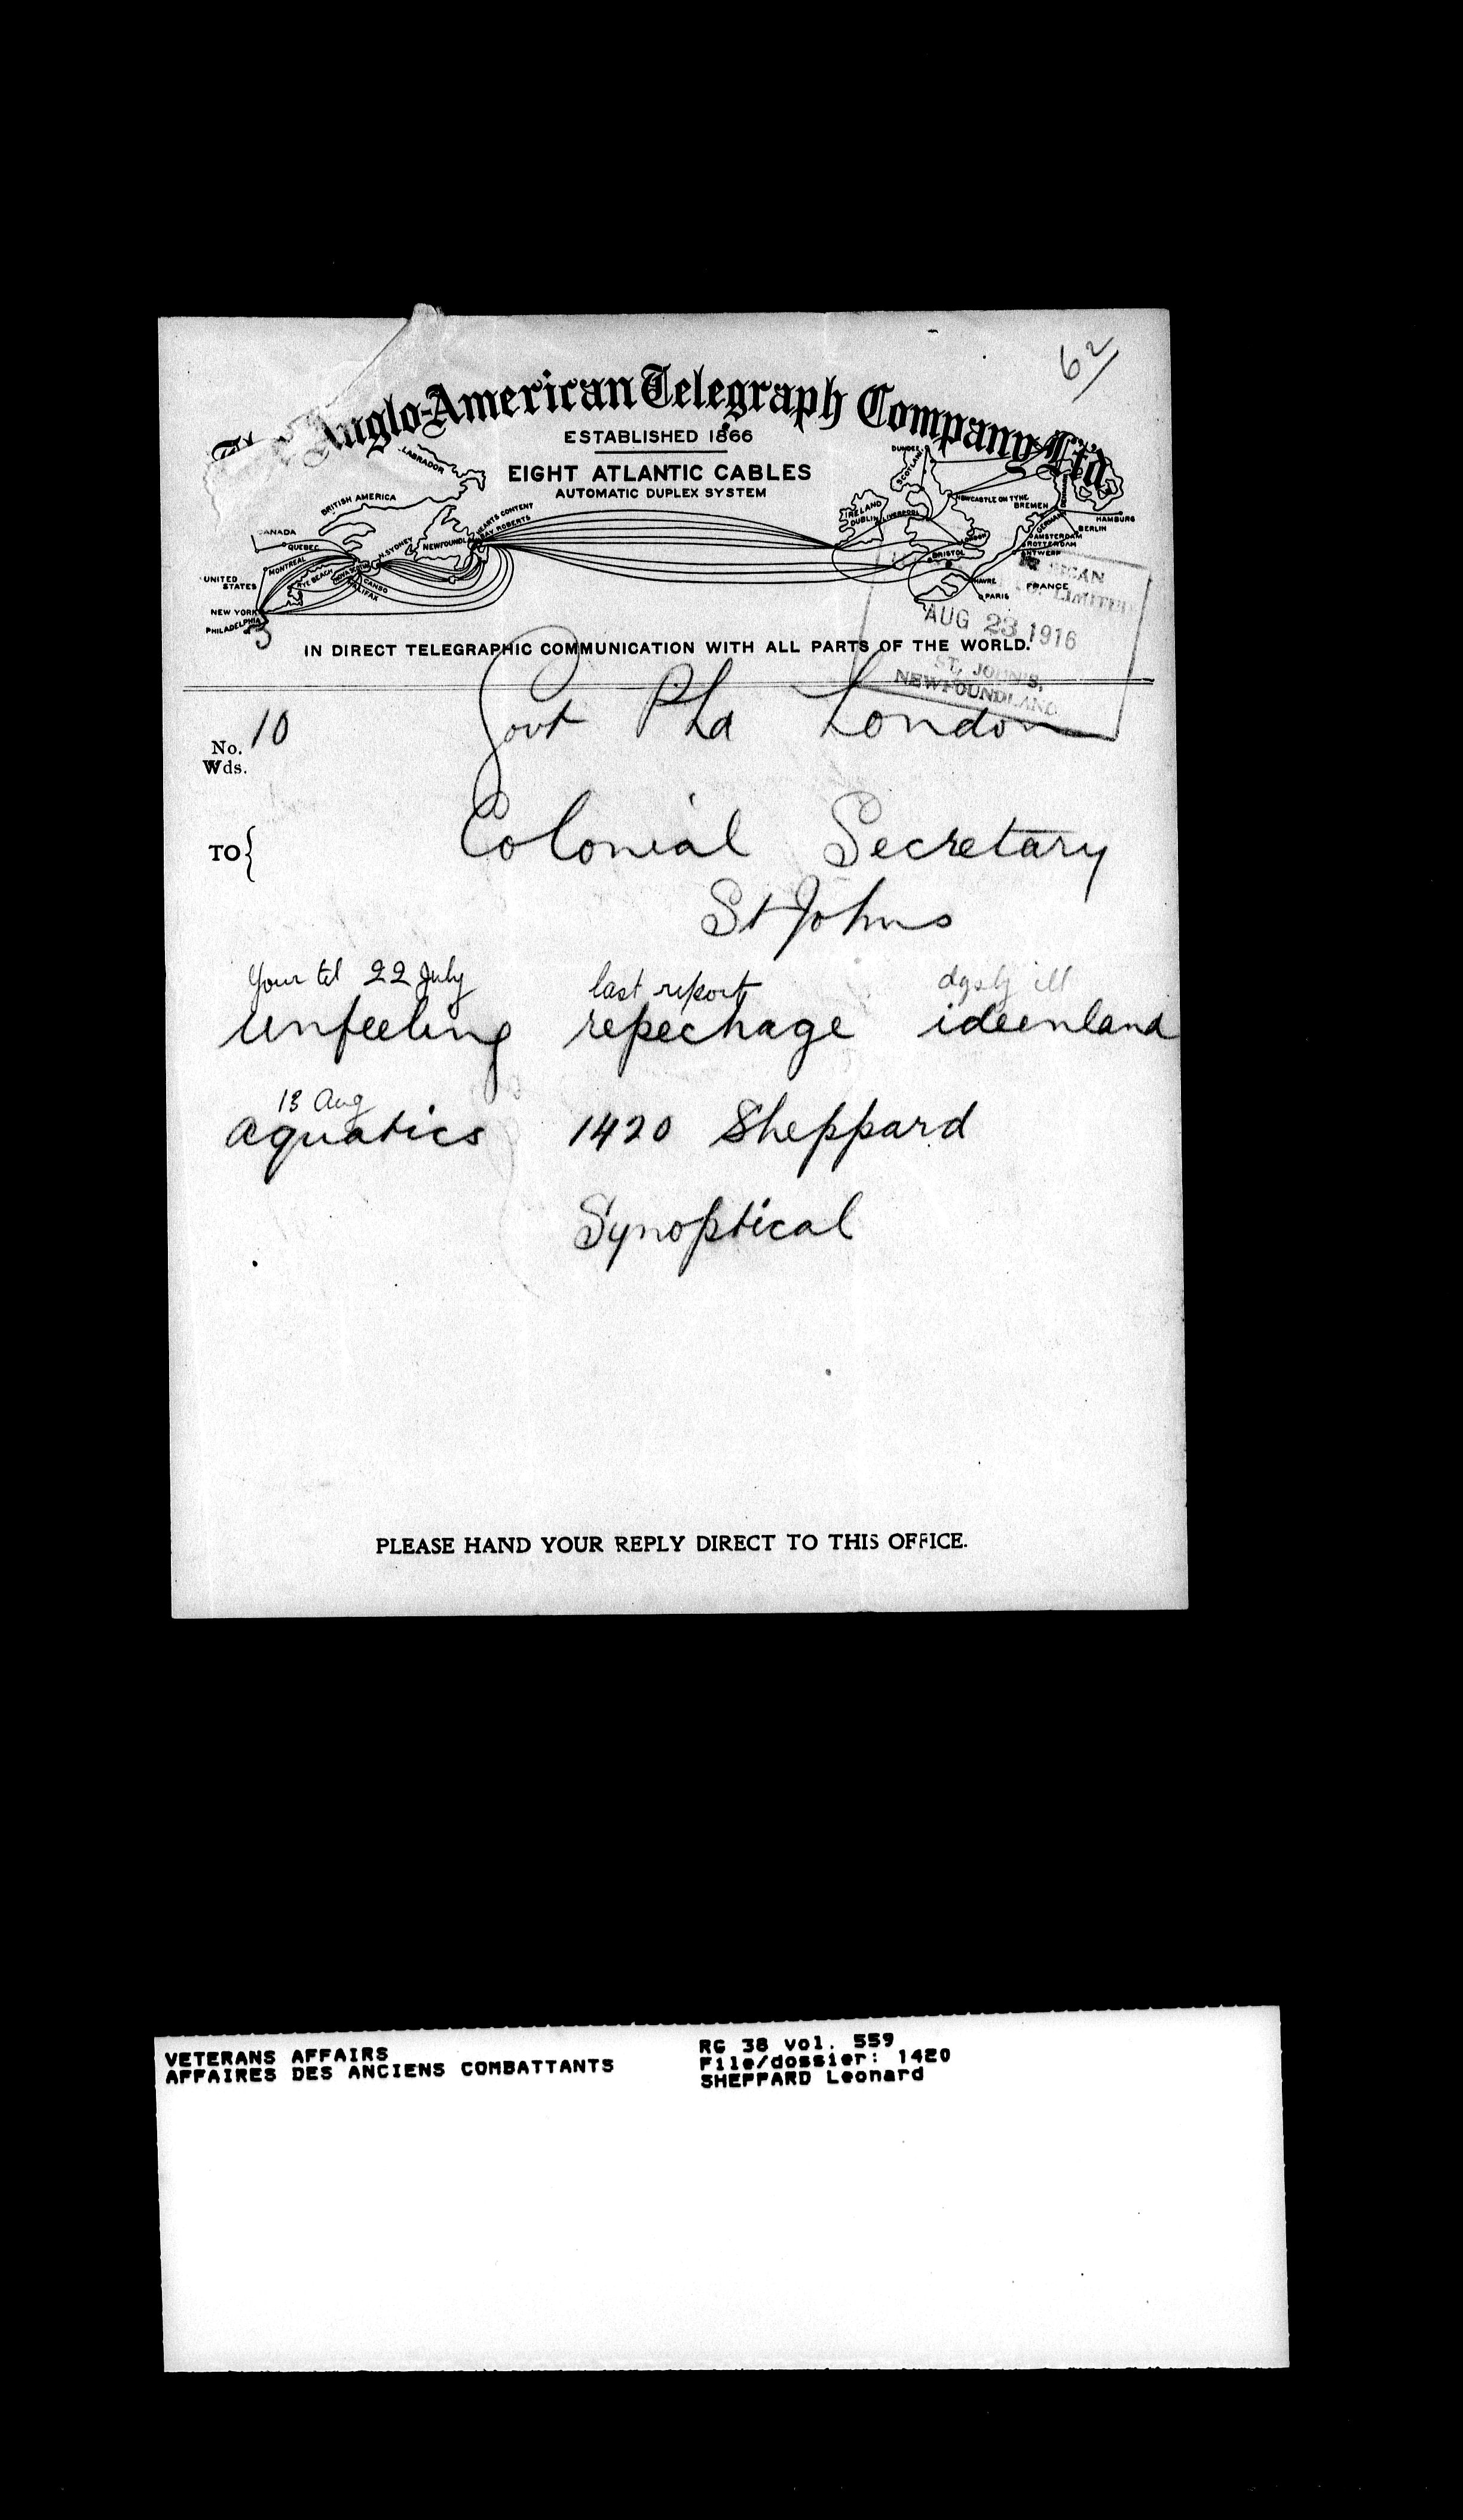 62
The Anglo-American Telegraph Company, Ltd.
ESTABLISHED 1866
EIGHT ATLANTIC CABLES
AUTOMATIC DUPLEX SYSTEM
LABRADOR
BRITISH AMERICA
CANADA
QUEBEC
MONTREAL
UNITED STATES
NEW YORK
PHILADELPHIA
RYE BEACH
NOVA SCOTIA
CANSO
HALIFAX
N. SYDNEY
NEWFOUNDLAND
HEARTS CONTENT
BAY ROBERTS
DUNDEE
SCOTLAND
IRELAND
DUBLIN
LIVERPOOL
NEWCASTLE ON TYNE
BREMEN
HAMBURG
BERLIN
GERMANY
AMSTERDAM
ROTTERDAM
ANTWERP
LONDON
BRISTOL
HAVRE
FRANCE
PARIS
RICAN
LIMITED
AUG 23 1916
ST. JOHN'S,
NEWFOUNDLAND
IN DIRECT TELEGRAPHIC COMMUNICATION WITH ALL PARTS OF THE WORLD.
No. Wds. 10
Govt London
TO{ Colonial Secretary
St Johns
Your tel 22 July last report ill
unfeeling repechage ideenland
13 Aug
aquatics 1420 Sheppard
Synoptical
PLEASE HAND YOUR REPLY DIRECT TO THIS OFFICE.
VETERANS AFFAIRS
AFFAIRES DES ANCIENS COMBATTANTS
RG 38 vol. 559
File/dossier: 1420
SHEPPARD Leonard